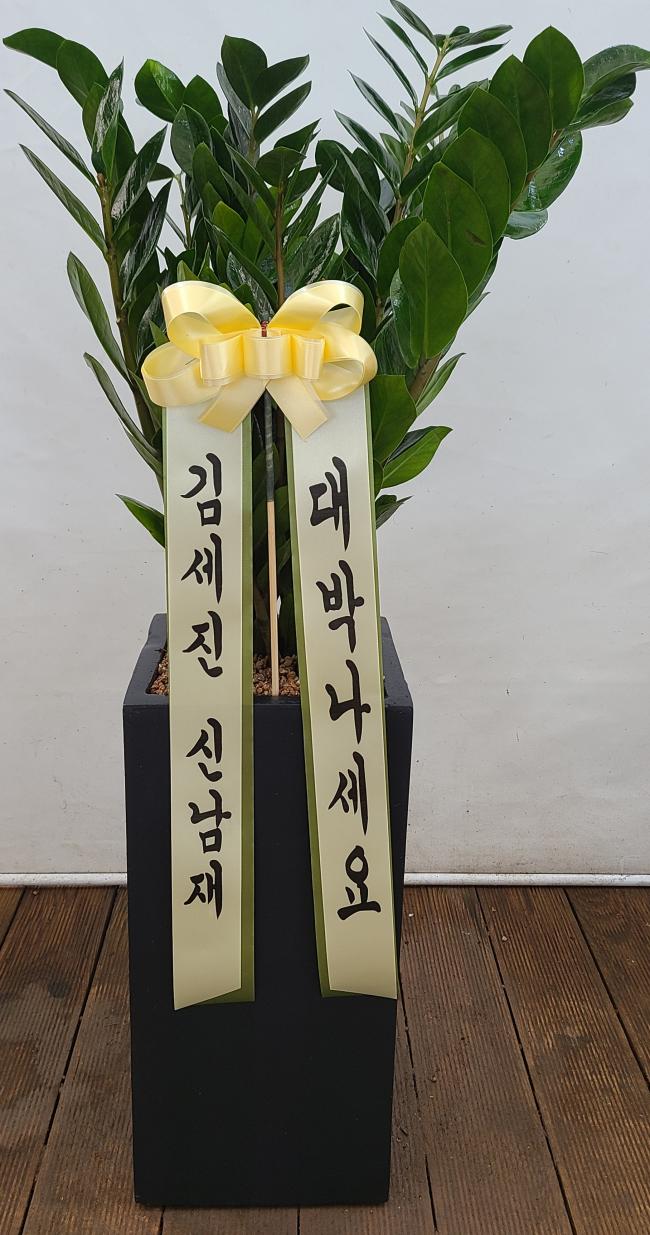 김세진 신남재
대박나세요